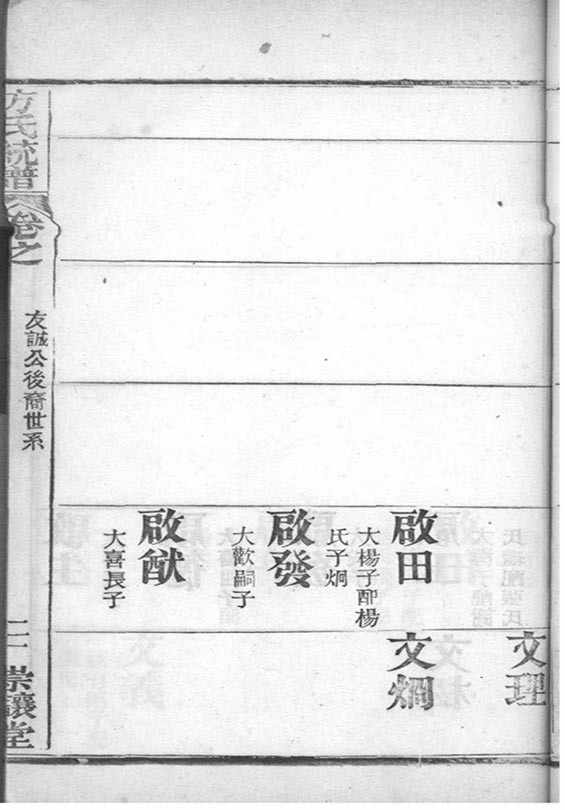 文理
啟田
大楊子配楊
氏子炯
文烱
啟發
大歡嗣子
啟猷
大喜長子
方氏統譜
卷之
友誠公後裔世系
崇讓堂